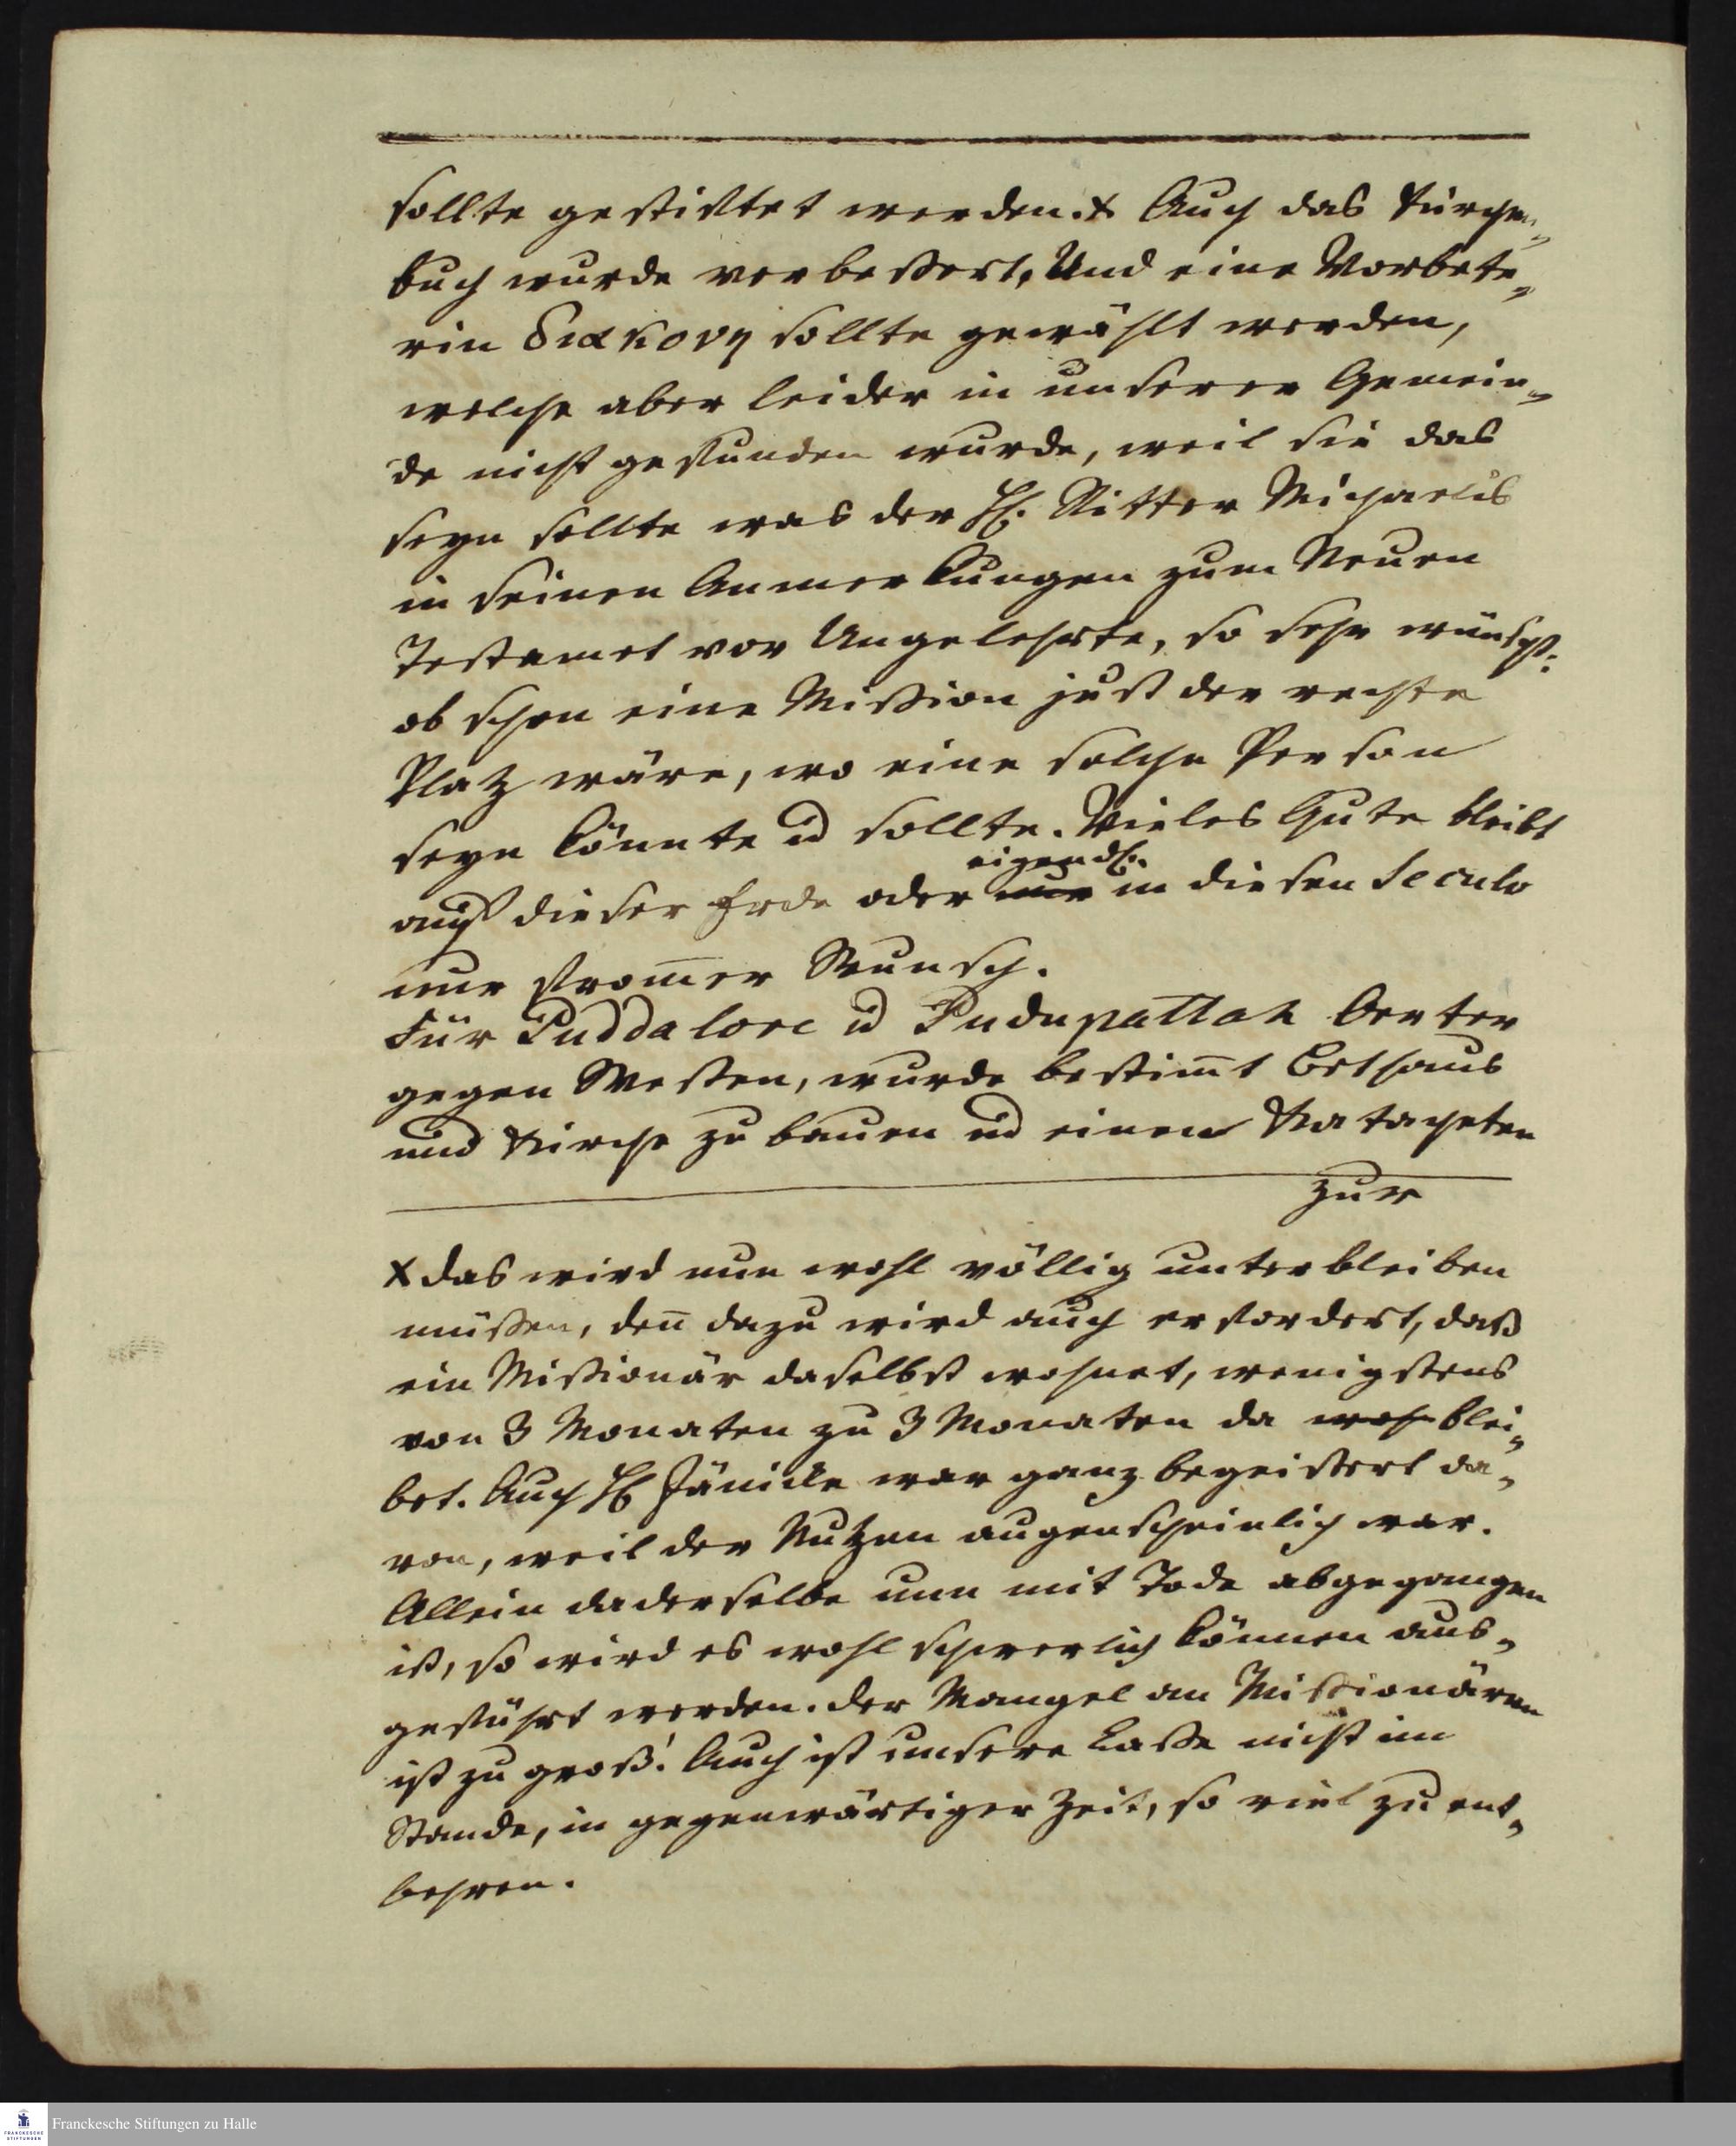 sollte gestiftet werden. x Auch das Kirchen„
buch wurde verbeßert, Und eine Vorbete„
rin διακονη sollte gewählt werden,
welche aber leider in unserer Gemein„
de nicht gefunden wurde, weil sie das
seyn sollte was der H. Ritter Michaelis
in seinen Anmerkungen zum Neuen
Testamet vor Ungelehrte, so sehr wünscht:
ob schon eine Mißion just der rechte
Platz wäre, wo eine solche Person
seyn könnte ud sollte. Vieles Gute bleibt
eigendl.
auf dieser Erde oder nur in diesen Seculo
nur from̅er Wunsch.
Für Puddalore ud Pudupattah Oerter
gegen Westen, wurde bestim̅t Bethaus
und Kirche zu bauen ud einen Katacheten
zur
x das wird nun wohl völlig unterbleiben
müßen, den̅ dazu wird auch erfordert, daß
ein Mißionär daselbst wohnet, wenigstens
von 3 Monaten zu 3 Monaten da woh blei„
bet. Auch H Jänicke war ganz begeistert da„
von, weil der Nutzen augenscheinlich war.
Allein da derselbe nun mit Tode abgegangen
ist, so wird es wohl schwerlich können aus„
geführt werden. Der Mangel an Mißionären
ist zu groß! Auch ist unsere Caße nicht im
Stande, in gegenwärtiger Zeit, so viel zu ent„
behren.
Franckesche Stiftungen zu Halle
FRANCKESCHE
STIFTUNGEN